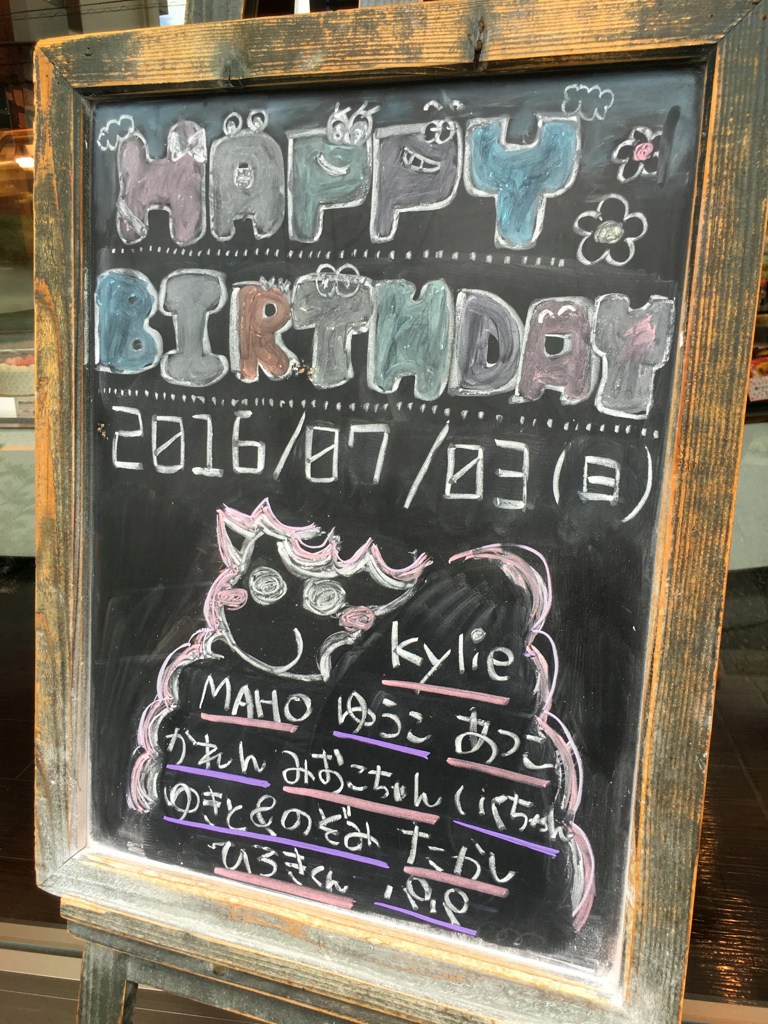 HAPPY
BIRTHDAY
2016/07/03(日)
kylie
MAHO ゆうこ あつこ
かれん みおこちゃん
ゆきと&のぞみ たかし
ひろきくん パパ